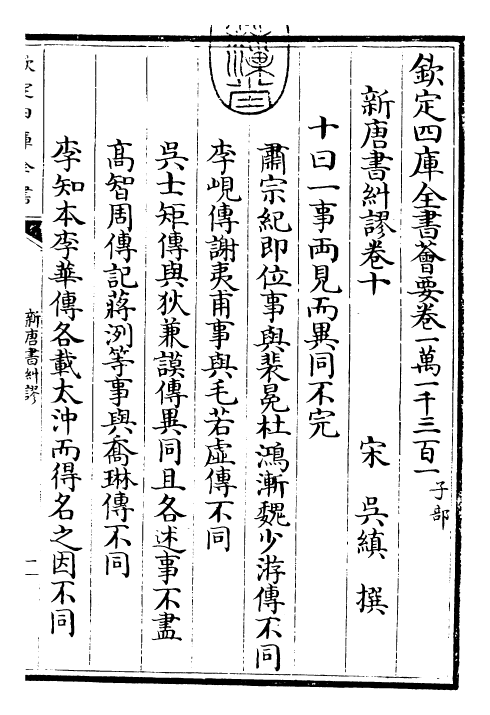 欽定四庫全書薈要卷一萬一千三百一 子部
新唐書糾謬卷十
宋 吳縝 撰
十曰一事兩見而異同不完
肅宗紀即位事與裴冕杜鴻漸魏少游傳不同
李峴傳謝夷甫事與毛若虛傳不同
吳士矩傳與狄兼謨傳異同且各述事不盡
高智周傳記蔣洌等事與喬琳傳不同
李知本李華傳各載太沖而得名之因不同
欽定四庫全書
新唐書糾謬